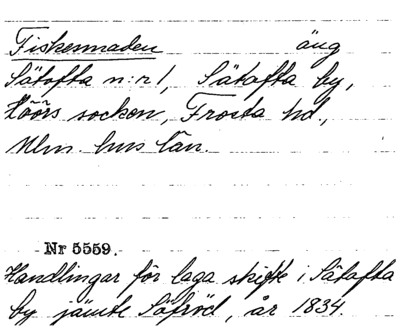 Fiskemaden äng
Sätofta n:r 1, Sätofta by,
Höörs socken, Frosta hd.,
Mlm. hus län.
Nr 5559.
Handlingar för laga skifte i Sätofta
by jämte Säfröd, år 1834.